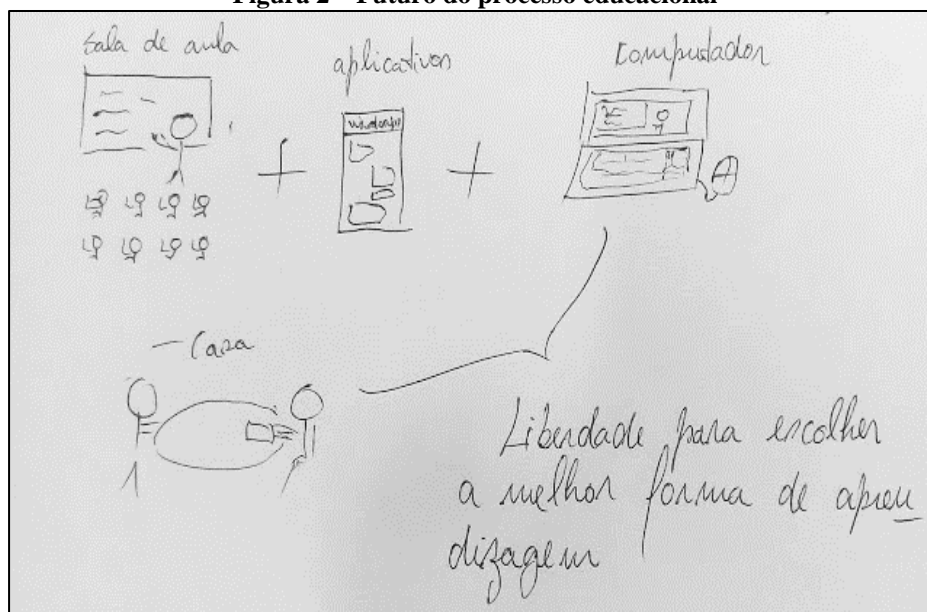 Figura 2 – Futuro do processo educacional
Sala de aula
aplicativos
Computador
whatsapp
- Casa
Liberdade para escolher
a melhor forma de apren
dizagem